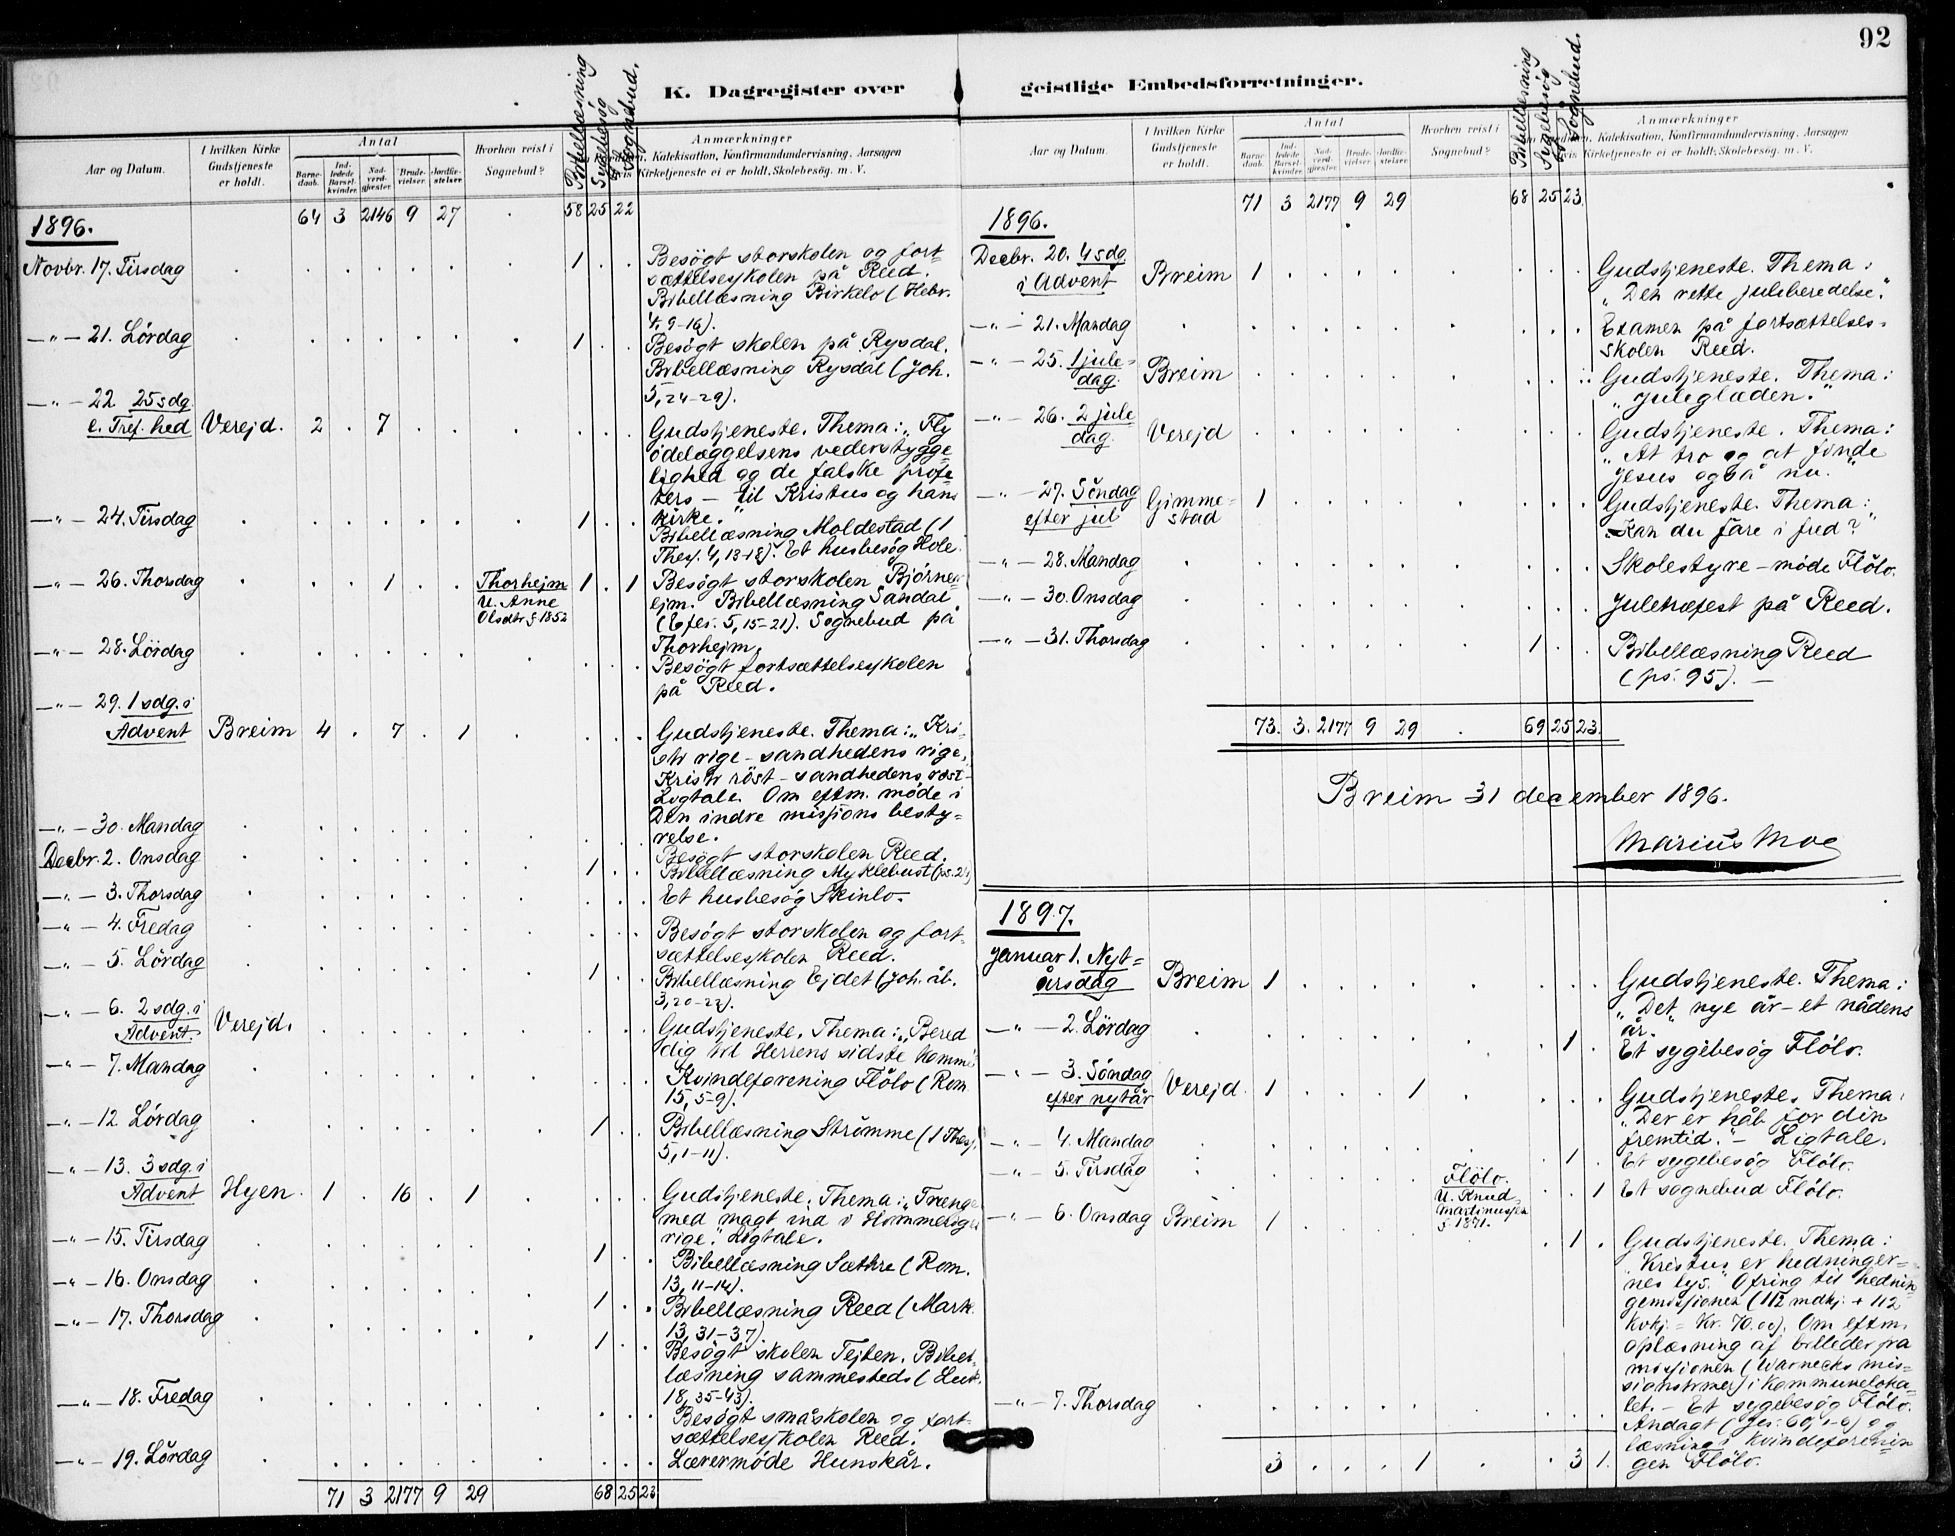 92
K. Dagregister over geistlige Embedsforretninger.
Aar og Datum.
I hvilken Kirke Gudstjeneste er holdt.
Antal
Barnedaab.
Indledede Barselkvinder.
Nadverdgjæster.
Brudevielser.
Jordfæstelser.
Hvorhen reist i Sognebud?
Bibellæsning
Sygebesøg
Sognebud.
Anmærkninger
Katekisation, Konfirmandundervisning. Aarsagen
Kirketjeneste ei er holdt, Skolebesøg. m. V.
1896. 64 3 2146 9 27 58 25 22
Novbr. 17. Tirsdag 1 Besögt storskolen og fort-
sættelsesskolen på Reed.
Bibellæsning Birkelo (Hebr.
4, 9-16).
—"— 21. Lördag 1 Besögt skolen på Rysdal.
Bibellæsning Rysdal (Joh.
5, 24-29).
—"— 22 25 sdg.
e. Tref.hed Verejd. 2 7 Gudstjeneste. Thema: „Fly
ödelæggelsens vederstygge-
lighed og de falske profe-
ters — til Kristus og hans
kirke."
—"— 24. Tirsdag 1 Bibellæsning Moldestad (1
Thes. 4, 13-18). Et husbesög Hole.
—"— 26. Thorsdag 1 Thorhejm 1 1 Besögt storskolen Björne-
U. Anne ejm. Bibellæsning Sandal
Olsdtr f 1852 (Efes. 5, 15-21). Sognebud på
Thorhejm.
—"— 28. Lördag Besögt fortsættelsesskolen
på Reed.
—"— 29. 1 sdg. i
Advent Breim 4 7 1 Gudstjeneste. Thema: „Kri-
sti rige — sandhedens rige,
Kristi röst — sandhedens röst"
Ligtale. Om eftm. möde i
Den indre missjons besty-
relse.
—"— 30. Mandag Besögt storskolen Reed.
Decbr. 2. Onsdag 1 Bibellæsning Myklebust (ps. 2)
—"— 3. Thorsdag Et husbesög Skinlo.
—"— 4. Fredag Besögt storskolen og fort-
sættelsesskolen Reed.
—"— 5. Lördag 1 Bibellæsning Ejdet (Joh. åb.
3, 20-22).
—"— 6. 2 sdg. i
Advent. Verejd. Gudstjeneste. Thema: „Bered
dig til Herrens sidste komme"
—"— 7. Mandag Kvindeforening Flölo (Rom
15, 5-9).
—"— 12 Lördag 1 Bibellæsning Strömme (1 Thes.
5, 1-11).
—"— 13. 3 sdg. i
Advent Hyen 1 16 1 Gudstjeneste. Thema: „Trænge
med magt ind i Himmeriges
rige." Ligtale.
—"— 15. Tirsdag 1 Bibellæsning Sæthre (Rom.
13, 11-14).
—"— 16. Onsdag 1 Bibellæsning Reed (Mark.
13, 31-37).
—"— 17. Thorsdag 1 Besögt skolen Tejten. Bibel-
læsning sammesteds (Luk.
18, 35-43).
—"— 18. Fredag Besögt småskolen og fort-
sættelsesskolen Reed.
—"— 19. Lördag Lærermöde Hunskår.
71 3 2177 9 29 68 25 23
Aar og Datum.
I hvilken Kirke Gudstjeneste er holdt.
Antal
Barnedaab.
Indledede Barselkvinder.
Nadverdgjæster.
Brudevielser.
Jordfæstelser.
Hvorhen reist i Sognebud?
Bibellæsning
Sygebesög
Sognebud.
Anmærkninger
Katekisation, Konfirmandundervisning. Aarsagen
Kirketjeneste ei er holdt, Skolebesøg. m. V.
71 3 2177 9 29 68 25 23
1896.
Decbr. 20. 4 sdg.
i Advent Breim 1 Gudstjeneste. Thema:
„Den rette juleberedelse".
—"— 21. Mandag Examen på fortsættelses-
skolen Reed.
—"— 25. 1 jule-
dag. Breim Gudstjeneste. Thema:
„Juleglæden."
—"— 26. 2 jule
dag. Verejd Gudstjeneste. Thema:
„At tro og at finde
Jesus også nu."
—"— 27. Söndag
efter jul Gimme-
stad 1 Gudstjeneste. Thema:
„Kan du fare i fred?"
—"— 28. Mandag Skolestyre-möde Flölo.
—"— 30. Onsdag Juletræfest på Reed.
—"— 31. Thorsdag 1 Bibellæsning Reed
(ps. 95). —
73. 3. 2177 9 29 69 25 23.
Breim 31 december 1896.
Marius Moe
1897.
Januar 1. Nyt-
årsdag Breim 1 Gudstjeneste. Thema:
„Det nye år — et nådens
år."
—"— 2. Lördag 1 Et sygebesög Flölo.
—"— 3. Söndag
efter nytår Verejd. 1 1 Gudstjeneste. Thema:
„Der er håb for din
fremtid." — Ligtale.
—"— 4. Mandag 1 Et sygebesög Flölo.
—"— 5. Tirsdag Flölo. 1 Et sognebud Flölo.
U. Knud
Martinussen
f. 1871.
—"— 6. Onsdag Breim 1 1 Gudstjeneste. Thema:
„Kristus er hedninger-
nes lys." Ofring til hednin-
gemissjonen (112 mdkj. + 112
kvkj. = Kr. 70.00). Om eftm.
oplæsning af billeder fra
missjonen (Warnecks mis-
sionstimer) i kommuneloka-
let. — Et sygebesög Flölo.
—"— 7. Thorsdag Andagt (Jes. 60, 1-6) og
læsning i kvindeforenin
gen Flölo.
3 1 3 1.